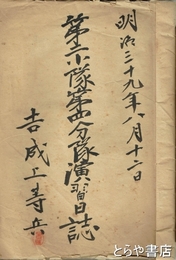 明治三十九年八月十二日
第六小隊第四分隊演習日誌
吉成上等兵
とらや書店